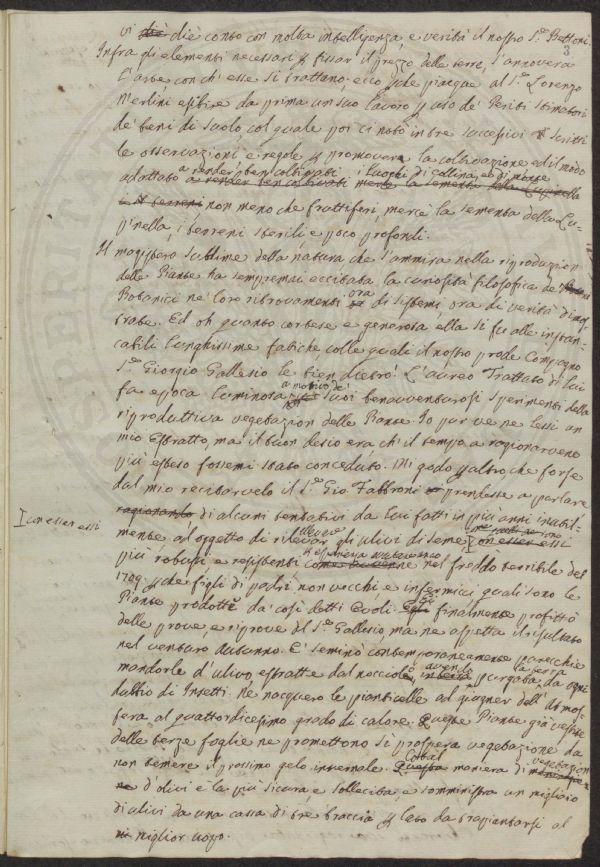 vi diè diè conto con molta intelligenza, e verità il nostro S.r Bettoni.
3
Infra gli elementi necessari p fissar il prezzo delle terre, s'annovera
l'arte con ch'esse si trattano; ecco pche piacque al S.r Lorenzo
Merlini esibire da prima un suo lavoro p uso de' Periti Stimatori
de' beni di suolo col quale poi ci notò in tre successivi Scritti
le osservazioni, e regole p promovere la coltivazione ed il modo
a render ben coltivati i luoghi di collina, ed
adattato a render ben coltivati mercè la sementa della Lupinella
i terreni non meno che fruttiferi, mercè la sementa della Lu-
pinella, i terreni sterili e poco profondi.
Il magistero sublime della natura che s'ammira nella riproduzion
delle Piante ha sempremai eccitata la curiosità filosofica de'
ora
Botanici ne' loro ritrovamenti di sistemi, ora di verità dimos
trate. Ed oh quanto cortese e generosa ella si fu alle infran-
cabili lunghissime fatiche, colle quali il nostro prode Compagno
S.r Giorgio Gallesio le tien dietro! L'aureo Trattato di lui
a motivo de'
fa epoca luminosa suoi benavventurosi sperimenti della
riproduttiva vegetazion delle Piante. Io pur ve ne lessi un
mio Estratto, ma il buon desio era ch'il tempo a ragionarvene
più esteso fossemi stato conceduto. Mi godo pò altro che forse
dal mio recitarvelo il S.r Gio. Fabbroni prendesse a parlare
ragionando di alcuni tentativi da lui fatti in più anni inutil-
I con esser essi
mente ad oggetto di rilevar gli ulivi di seme I con esser essi
più robusti e resistenti come avvenne nel freddo terribile del
1709. pche figli di padri non vecchi e infermicci quali sono le
Piante prodotte da così detti Ovoli. Egli finalmente profittò
delle prove, e riprove del S.r Gallesio, ma ne aspetta il risultato
nel venturo autunno. E' seminò contemporaneamente parecchie
avendo la terra
mandorle d'ulivo, estratte dal nocciolo, in terra purgata da ogni
dubbio di Insetti. Ne nacquero le pianticelle ad giugner dell'Atmos-
fera al quattordicesimo grado di calore. Queste Piante già vestite
delle terze foglie ne promettono sì prospera vegetazione da
non temere il prossimo gelo invernale. Questa maniera di
Cotal vegetazion
d'olivi è la più sicura, e sollecita, e somministra un migliaio
di ulivi da una cassa di tre braccia p lato da trapiantarsi al
miglior uopo.